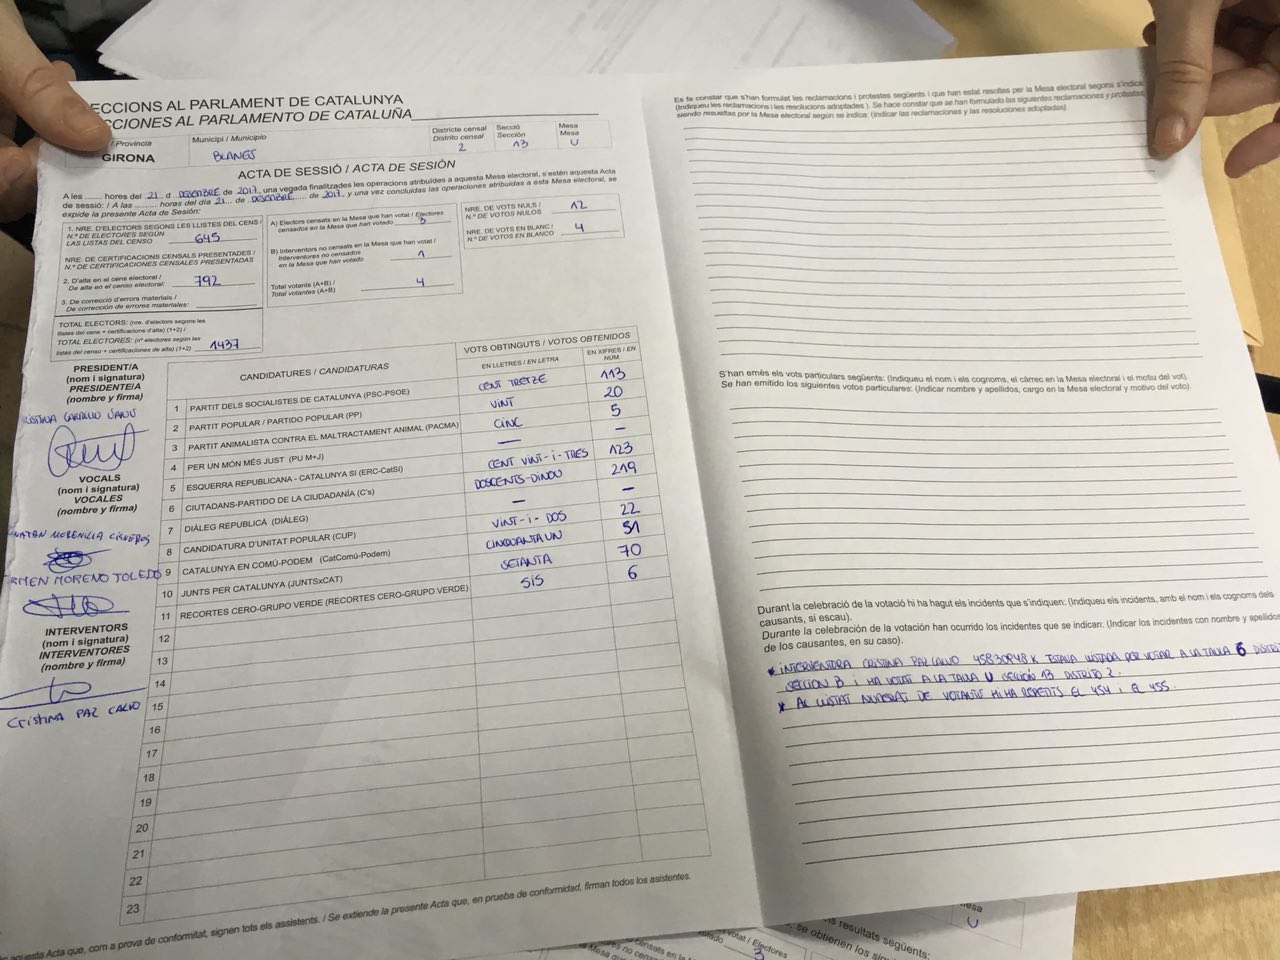 ECCIONS AL PARLAMENT DE CATALUNYA
CCIONES AL PARLAMENTO DE CATALUÑA
/ Provincia
GIRONA
Municipi / Municipio
BLANES
Districte censal
Distrito censal
2
Secció
Sección
13
Mesa
Mesa
U
ACTA DE SESSIÓ / ACTA DE SESIÓN
A les ........ hores del 21 d DESEMBRE de 2017, una vegada finalitzades les operacions atribuïdes a aquesta Mesa electoral, s'estén aquesta Acta
de sessió: / A las ......... horas del día 21 de DESEMBRE de 2017, y una vez concluidas las operaciones atribuidas a esta Mesa electoral, se
expide la presente Acta de Sesión:
1. NRE. D'ELECTORS SEGONS LES LLISTES DEL CENS /
N.º DE ELECTORES SEGÚN
LAS LISTAS DEL CENSO 645
NRE. DE CERTIFICACIONS CENSALS PRESENTADES /
N.º DE CERTIFICACIONES CENSALES PRESENTADAS
2. D'alta en el cens electoral /
De alta en el censo electoral: 792
3. De correcció d'errors materials /
De corrección de errores materiales:
TOTAL ELECTORS: (nre. d'electors segons les
llistes del cens + certificacions d'alta) (1+2) /
TOTAL ELECTORES: (nº electores según las
listas del censo + certificaciones de alta) (1+2) 1437
A) Electors censats en la Mesa que han votat / Electores
censados en la Mesa que han votado 3
B) Interventors no censats en la Mesa que han votat /
Interventores no censados
en la Mesa que han votado 1
Total votants (A+B) /
Total votantes (A+B) 4
NRE. DE VOTS NULS /
N.º DE VOTOS NULOS 12
NRE. DE VOTS EN BLANC /
N.º DE VOTOS EN BLANCO 4
PRESIDENT/A
(nom i signatura)
PRESIDENTE/A
(nombre y firma)
VOCALS
(nom i signatura)
VOCALES
(nombre y firma)
MORENO TOLEDO
INTERVENTORS
(nom i signatura)
INTERVENTORES
(nombre y firma)
CRISTINA PAZ CALVO
CANDIDATURES / CANDIDATURAS
VOTS OBTINGUTS / VOTOS OBTENIDOS
EN LLETRES / EN LETRA
EN XIFRES / EN NÚM.
1 PARTIT DELS SOCIALISTES DE CATALUNYA (PSC-PSOE) CENT TRETZE 113
2 PARTIT POPULAR / PARTIDO POPULAR (PP) VINT 20
3 PARTIT ANIMALISTA CONTRA EL MALTRACTAMENT ANIMAL (PACMA) CINC 5
4 PER UN MÓN MÉS JUST (PU M+J) — –
5 ESQUERRA REPUBLICANA - CATALUNYA SÍ (ERC-CatSí) CENT VINT-I-TRES 123
6 CIUTADANS-PARTIDO DE LA CIUDADANÍA (C's) DOSCENTS-DINOU 219
7 DIÀLEG REPUBLICÀ (DIÀLEG) – –
8 CANDIDATURA D'UNITAT POPULAR (CUP) VINT-I-DOS 22
9 CATALUNYA EN COMÚ-PODEM (CatComú-Podem) CINQUANTA UN 51
10 JUNTS PER CATALUNYA (JUNTSxCAT) SETANTA 70
11 RECORTES CERO-GRUPO VERDE (RECORTES CERO-GRUPO VERDE) SIS 6
12
13
14
15
16
17
18
19
20
21
22
23
aquesta Acta que, com a prova de conformitat, signen tots els assistents. / Se extiende la presente Acta que, en prueba de conformidad, firman todos los asistentes.
Es fa constar que s'han formulat les reclamacions i protestes següents i que han estat resoltes per la Mesa electoral segons s'indica
(Indiqueu les reclamacions i les resolucions adoptades). Se hace constar que se han formulado las siguientes reclamaciones y protestas,
siendo resueltas por la Mesa electoral según se indica: (Indicar las reclamaciones y las resoluciones adoptadas)
S'han emès els vots particulars següents: (Indiqueu el nom i els cognoms, el càrrec en la Mesa electoral i el motiu del vot).
Se han emitido los siguientes votos particulares: (Indicar nombre y apellidos, cargo en la Mesa electoral y motivo del voto).
Durant la celebració de la votació hi ha hagut els incidents que s'indiquen: (Indiqueu els incidents, amb el nom i els cognoms dels
causants, si escau).
Durante la celebración de la votación han ocurrido los incidentes que se indican: (Indicar los incidentes con nombre y apellidos
de los causantes, en su caso).
* INTERVENTORA CRISTINA PAZ CALVO 45830848K ESTAVA LLISTADA PER VOTAR A LA TAULA 6
SECCION B I HA VOTAT A LA TAULA U SECCION 13 DISTRITO 2.
* AL LLISTAT NUMERAT DE VOTANTS HI HA REPETITS EL 454 I EL 455.
esa
U
els resultats següents:
se obtienen los
votat / Electores
votado 3